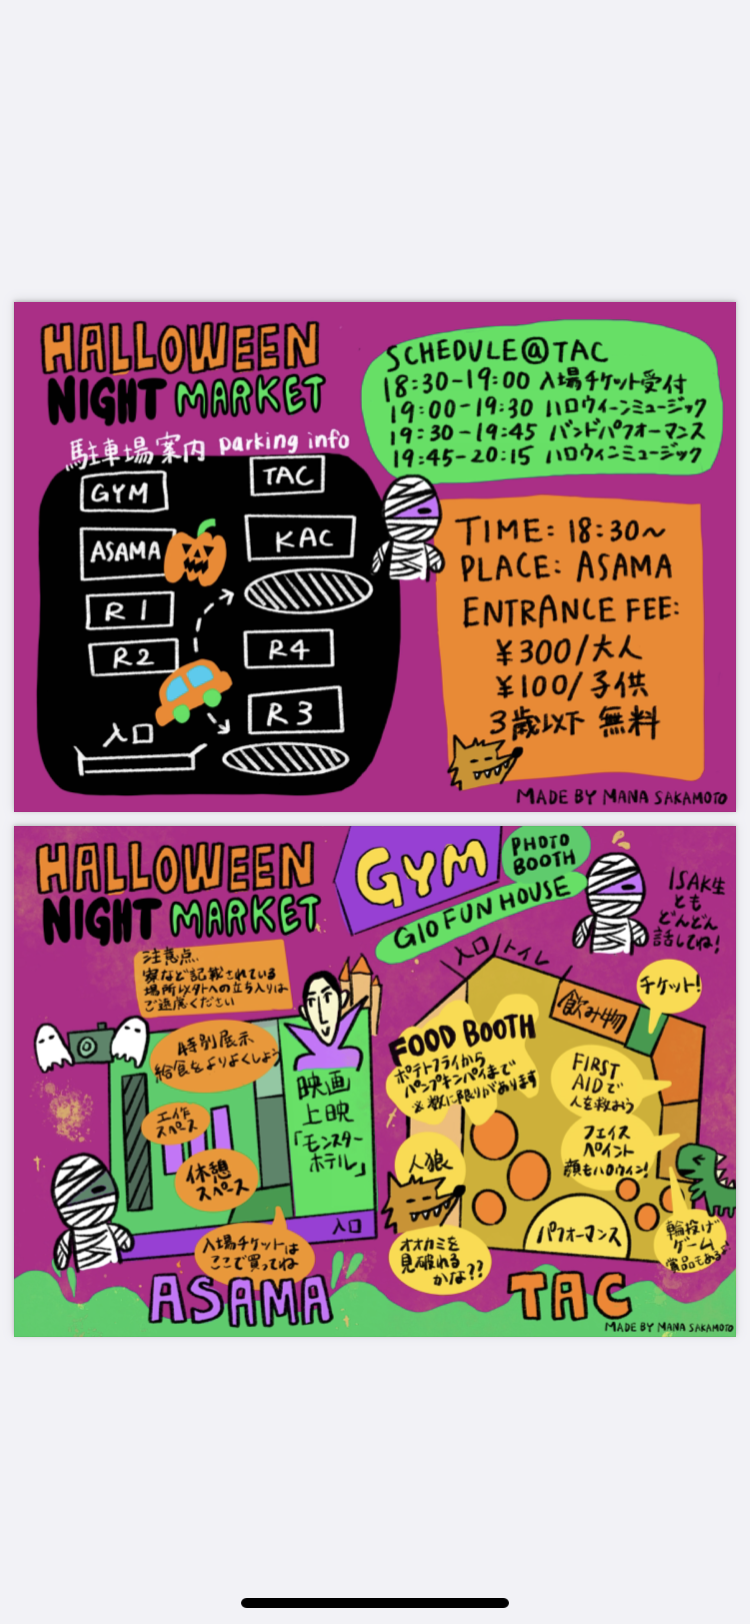 HALLOWEEN
NIGHT MARKET
駐車場案内 parking info
GYM
TAC
ASAMA
KAC
R1
R2
R4
R3
入口
SCHEDULE@TAC
18:30-19:00 入場チケット受付
19:00-19:30 ハロウィーンミュージック
19:30-19:45 バンドパフォーマンス
19:45-20:15 ハロウィンミュージック
TIME: 18:30~
PLACE: ASAMA
ENTRANCE FEE:
¥300/大人
¥100/子供
3歳以下 無料
MADE BY MANA SAKAMOTO
HALLOWEEN
NIGHT MARKET
GYM
PHOTO
BOOTH
G10 FUN HOUSE
ISAK生
とも
どんどん
話してね!
注意点
寮など記載されている
場所以外への立ち入りは
ご遠慮ください
特別展示
給食をよりよくしよう
工作
スペース
休憩
スペース
映画
上映
「モンスター
ホテル」
入口
入場チケットは
ここで買ってね
ASAMA
入口
トイレ
飲み物
チケット!
FOOD BOOTH
ポテトフライから
パンプキンパイまで
※数に限りがあります
FIRST
AIDで
人を救おう
フェイス
ペイント
顔もハロウィン!
人狼
オオカミを
見破れる
かな??
パフォーマンス
輪投げ
ゲーム
賞品もあるよ
TAC
MADE BY MANA SAKAMOTO